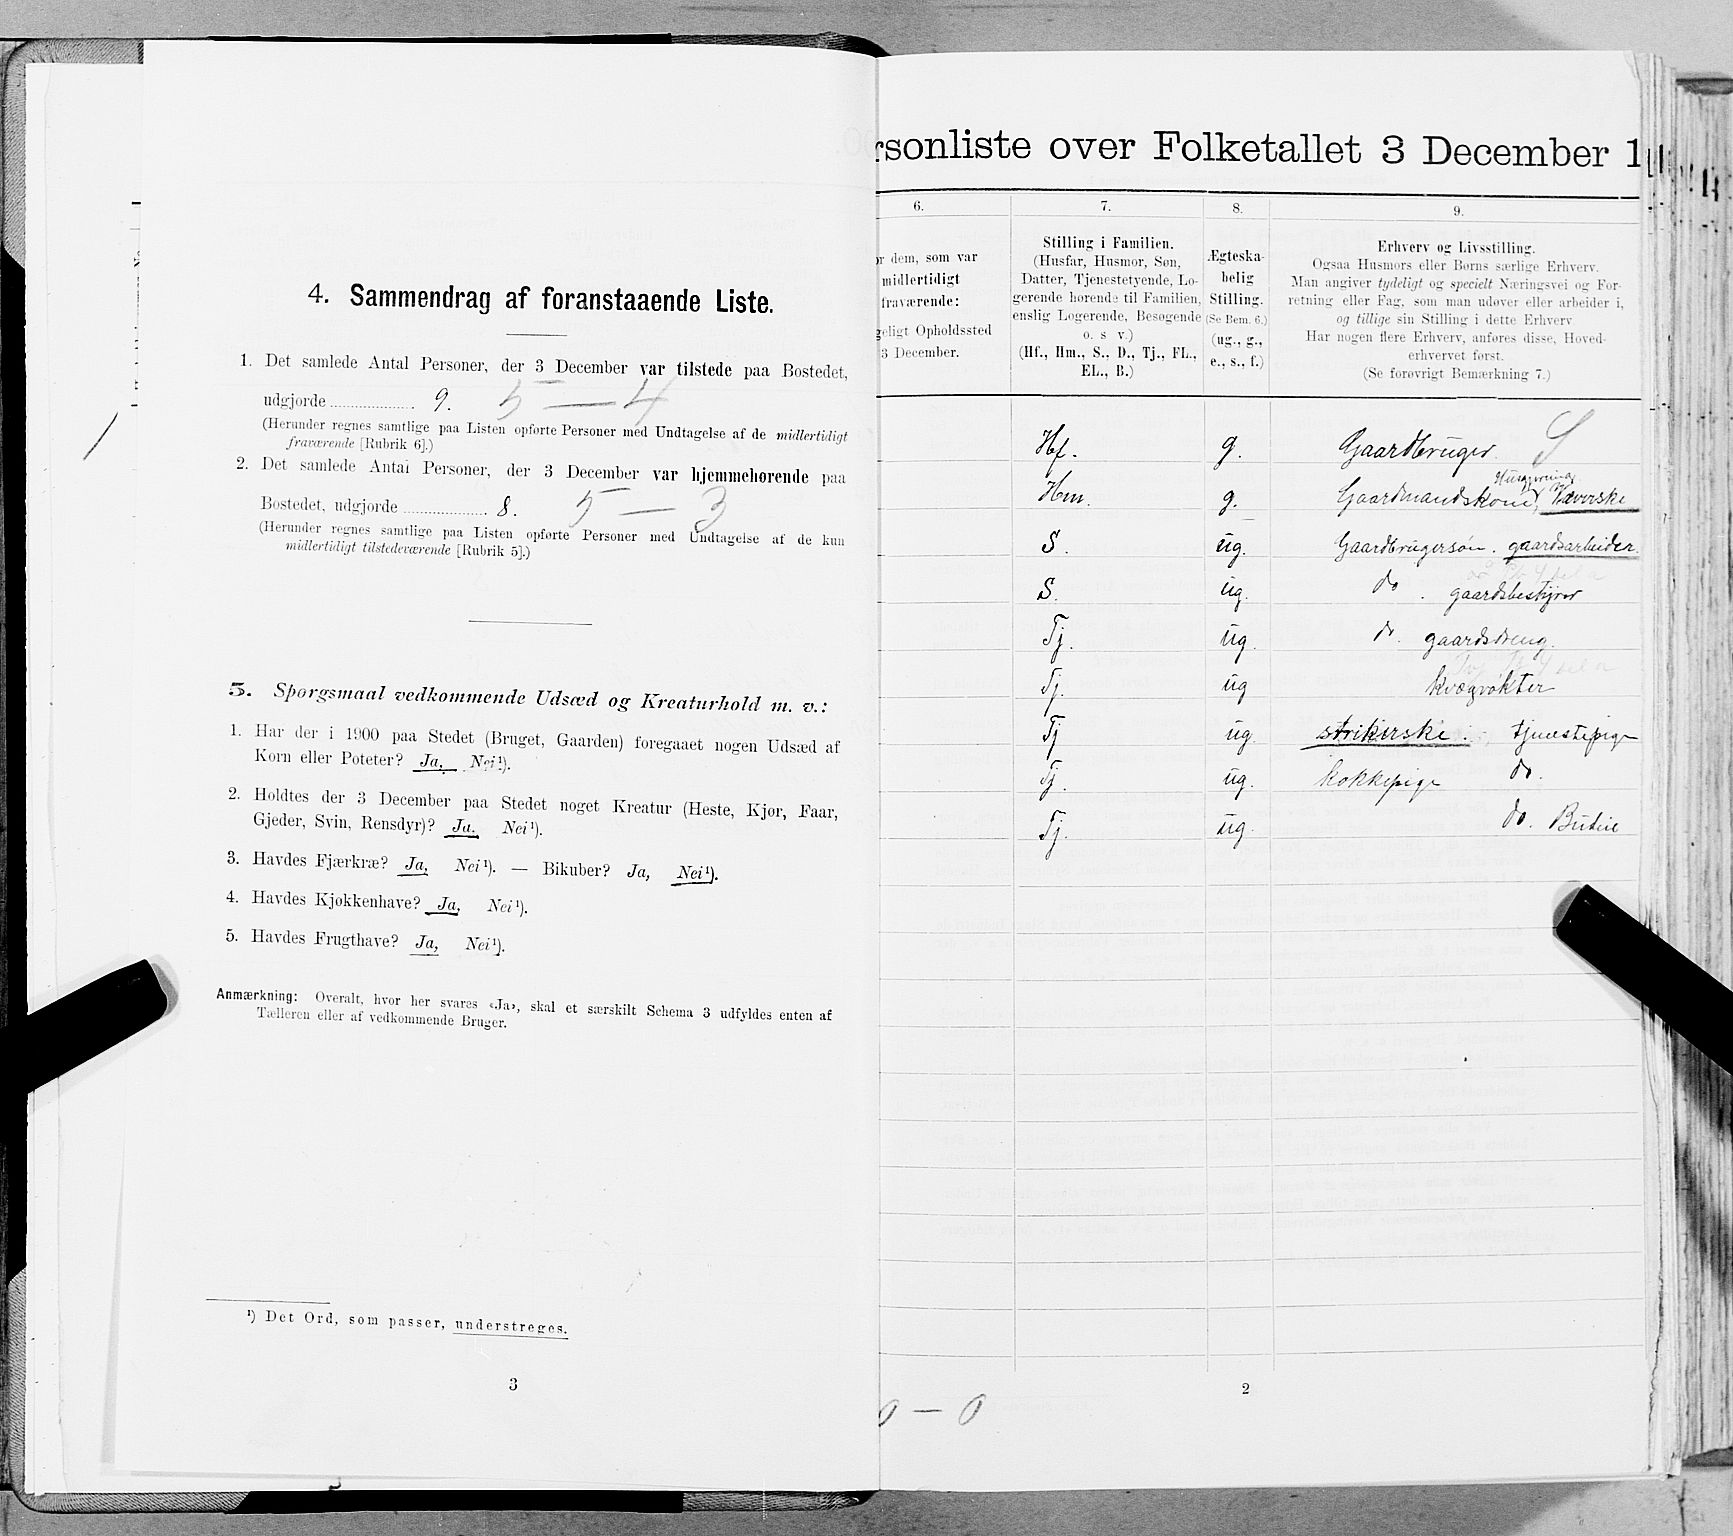 4. Sammendrag af foranstaaende Liste.
1. Det samlede Antal Personer, der 3 December var tilstede paa Bostedet,
udgjorde .................... 9. 5 — 4
(Herunder regnes samtlige paa Listen opførte Personer med Undtagelse af de midlertidigt
fraværende [Rubrik 6].)
2. Det samlede Antal Personer, der 3 December var hjemmehørende paa
Bostedet, udgjorde .................... 8. 5 — 3
(Herunder regnes samtlige paa Listen opførte Personer med Undtagelse af de kun
midlertidigt tilstedeværende [Rubrik 5].)
5. Spørgsmaal vedkommende Udsæd og Kreaturhold m. v.:
1. Har der i 1900 paa Stedet (Bruget, Gaarden) foregaaet nogen Udsæd af
Korn eller Poteter? Ja, Nei¹).
2. Holdtes der 3 December paa Stedet noget Kreatur (Heste, Kjør, Faar,
Gjeder, Svin, Rensdyr)? Ja. Nei¹).
3. Havdes Fjærkræ? Ja, Nei¹). — Bikuber? Ja, Nei¹).
4. Havdes Kjøkkenhave? Ja, Nei¹).
5. Havdes Frugthave? Ja, Nei¹).
Anmærkning: Overalt, hvor her svares «Ja», skal et særskilt Schema 3 udfyldes enten af
Tælleren eller af vedkommende Bruger.
¹) Det Ord, som passer, understreges.
3
rsonliste over Folketallet 3 December 1
6. 7. 8. 9.
r dem, som var
midlertidigt
fraværende:
geligt Opholdssted
3 December.
Stilling i Familien.
(Husfar, Husmor, Søn,
Datter, Tjenestetyende, Lo-
gerende hørende til Familien,
enslig Logerende, Besøgende
o. s v.)
(Hf., Hm., S., D., Tj., FL.,
EL., B.)
Ægteska-
belig
Stilling.
(Se Bem. 6.)
(ug., g.,
e., s., f.)
Erhverv og Livsstilling.
Ogsaa Husmors eller Børns særlige Erhverv.
Man angiver tydeligt og specielt Næringsvei og For-
retning eller Fag, som man udøver eller arbeider i,
og tillige sin Stilling i dette Erhverv
Har nogen flere Erhverv, anføres disse, Hoved-
erhvervet først.
(Se forøvrigt Bemærkning 7.)
Hf. g. Gaardbruger S
Husgjerning
Hm. g. Gaardmandskone, Væverske
S. ug. Gaardbrugersøn. gaardsarbeider.
S. ug. do. gaardsbestyrer
Tj. ug. do. gaardsdreng.
Tj. ug Kvægvokter
Tj ug. strikerske. tjenestepige
Tj. ug. Kokkepige do.
Tj. ug. do. Budeie
2
0 — 0